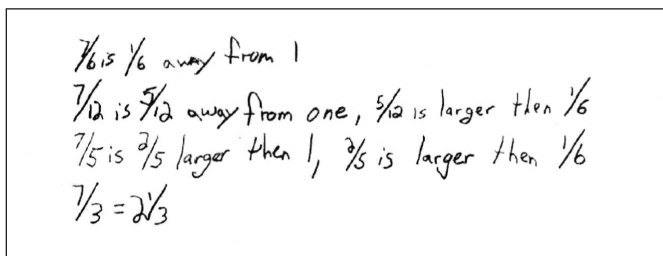 7/6 is 1/6 away from 1
7/12 is 5/12 away from one, 5/12 is larger then 1/6
7/5 is 2/5 larger then 1, 2/5 is larger then 1/6
7/3 = 2 1/3